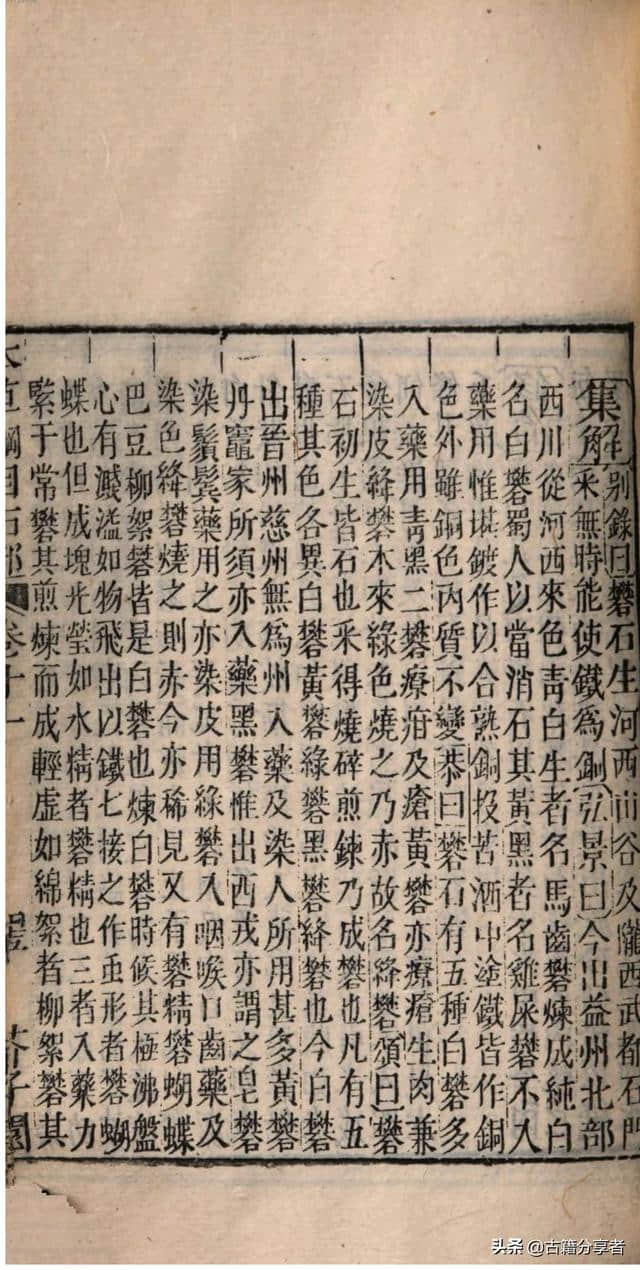 集解 別錄曰礬石生河西山谷及隴西武都石門
采無時能使鐵爲銅弘景曰今出益州北部
西川從河西來色青白生者名馬齒礬煉成純白
名白礬蜀人以當消石其黃黑者名雞屎礬不入
藥用惟堪鍍作以合熟銅投苦酒中塗鐵皆作銅
色外雖銅色內質不變恭曰礬石有五種白礬多
入藥用青黑二礬療疳及瘡黃礬亦療瘡生肉兼
染皮絳礬本來綠色燒之乃赤故名絳礬頌曰礬
石初生皆石也采得燒碎煎鍊乃成礬也凡有五
種其色各異白礬黃礬綠礬黑礬絳礬也今白礬
出晉州慈州無爲州入藥及染人所用甚多黃礬
丹竈家所須亦入藥黑礬惟出西戎亦謂之皂礬
染鬚鬢藥用之亦染皮用綠礬入咽喉口齒藥及
染色絳礬燒之則赤今亦稀見又有礬精礬蝴蝶
巴豆柳絮礬皆是白礬也煉白礬時候其極沸盤
心有濺溢如物飛出以鐵匕接之作虫形者礬蝴
蝶也但成塊光瑩如水精者礬精也三者入藥力
緊于常礬其煎煉而成輕虛如綿絮者柳絮礬其
本草綱目石部 卷十一 芥子園
头条@古籍分享者